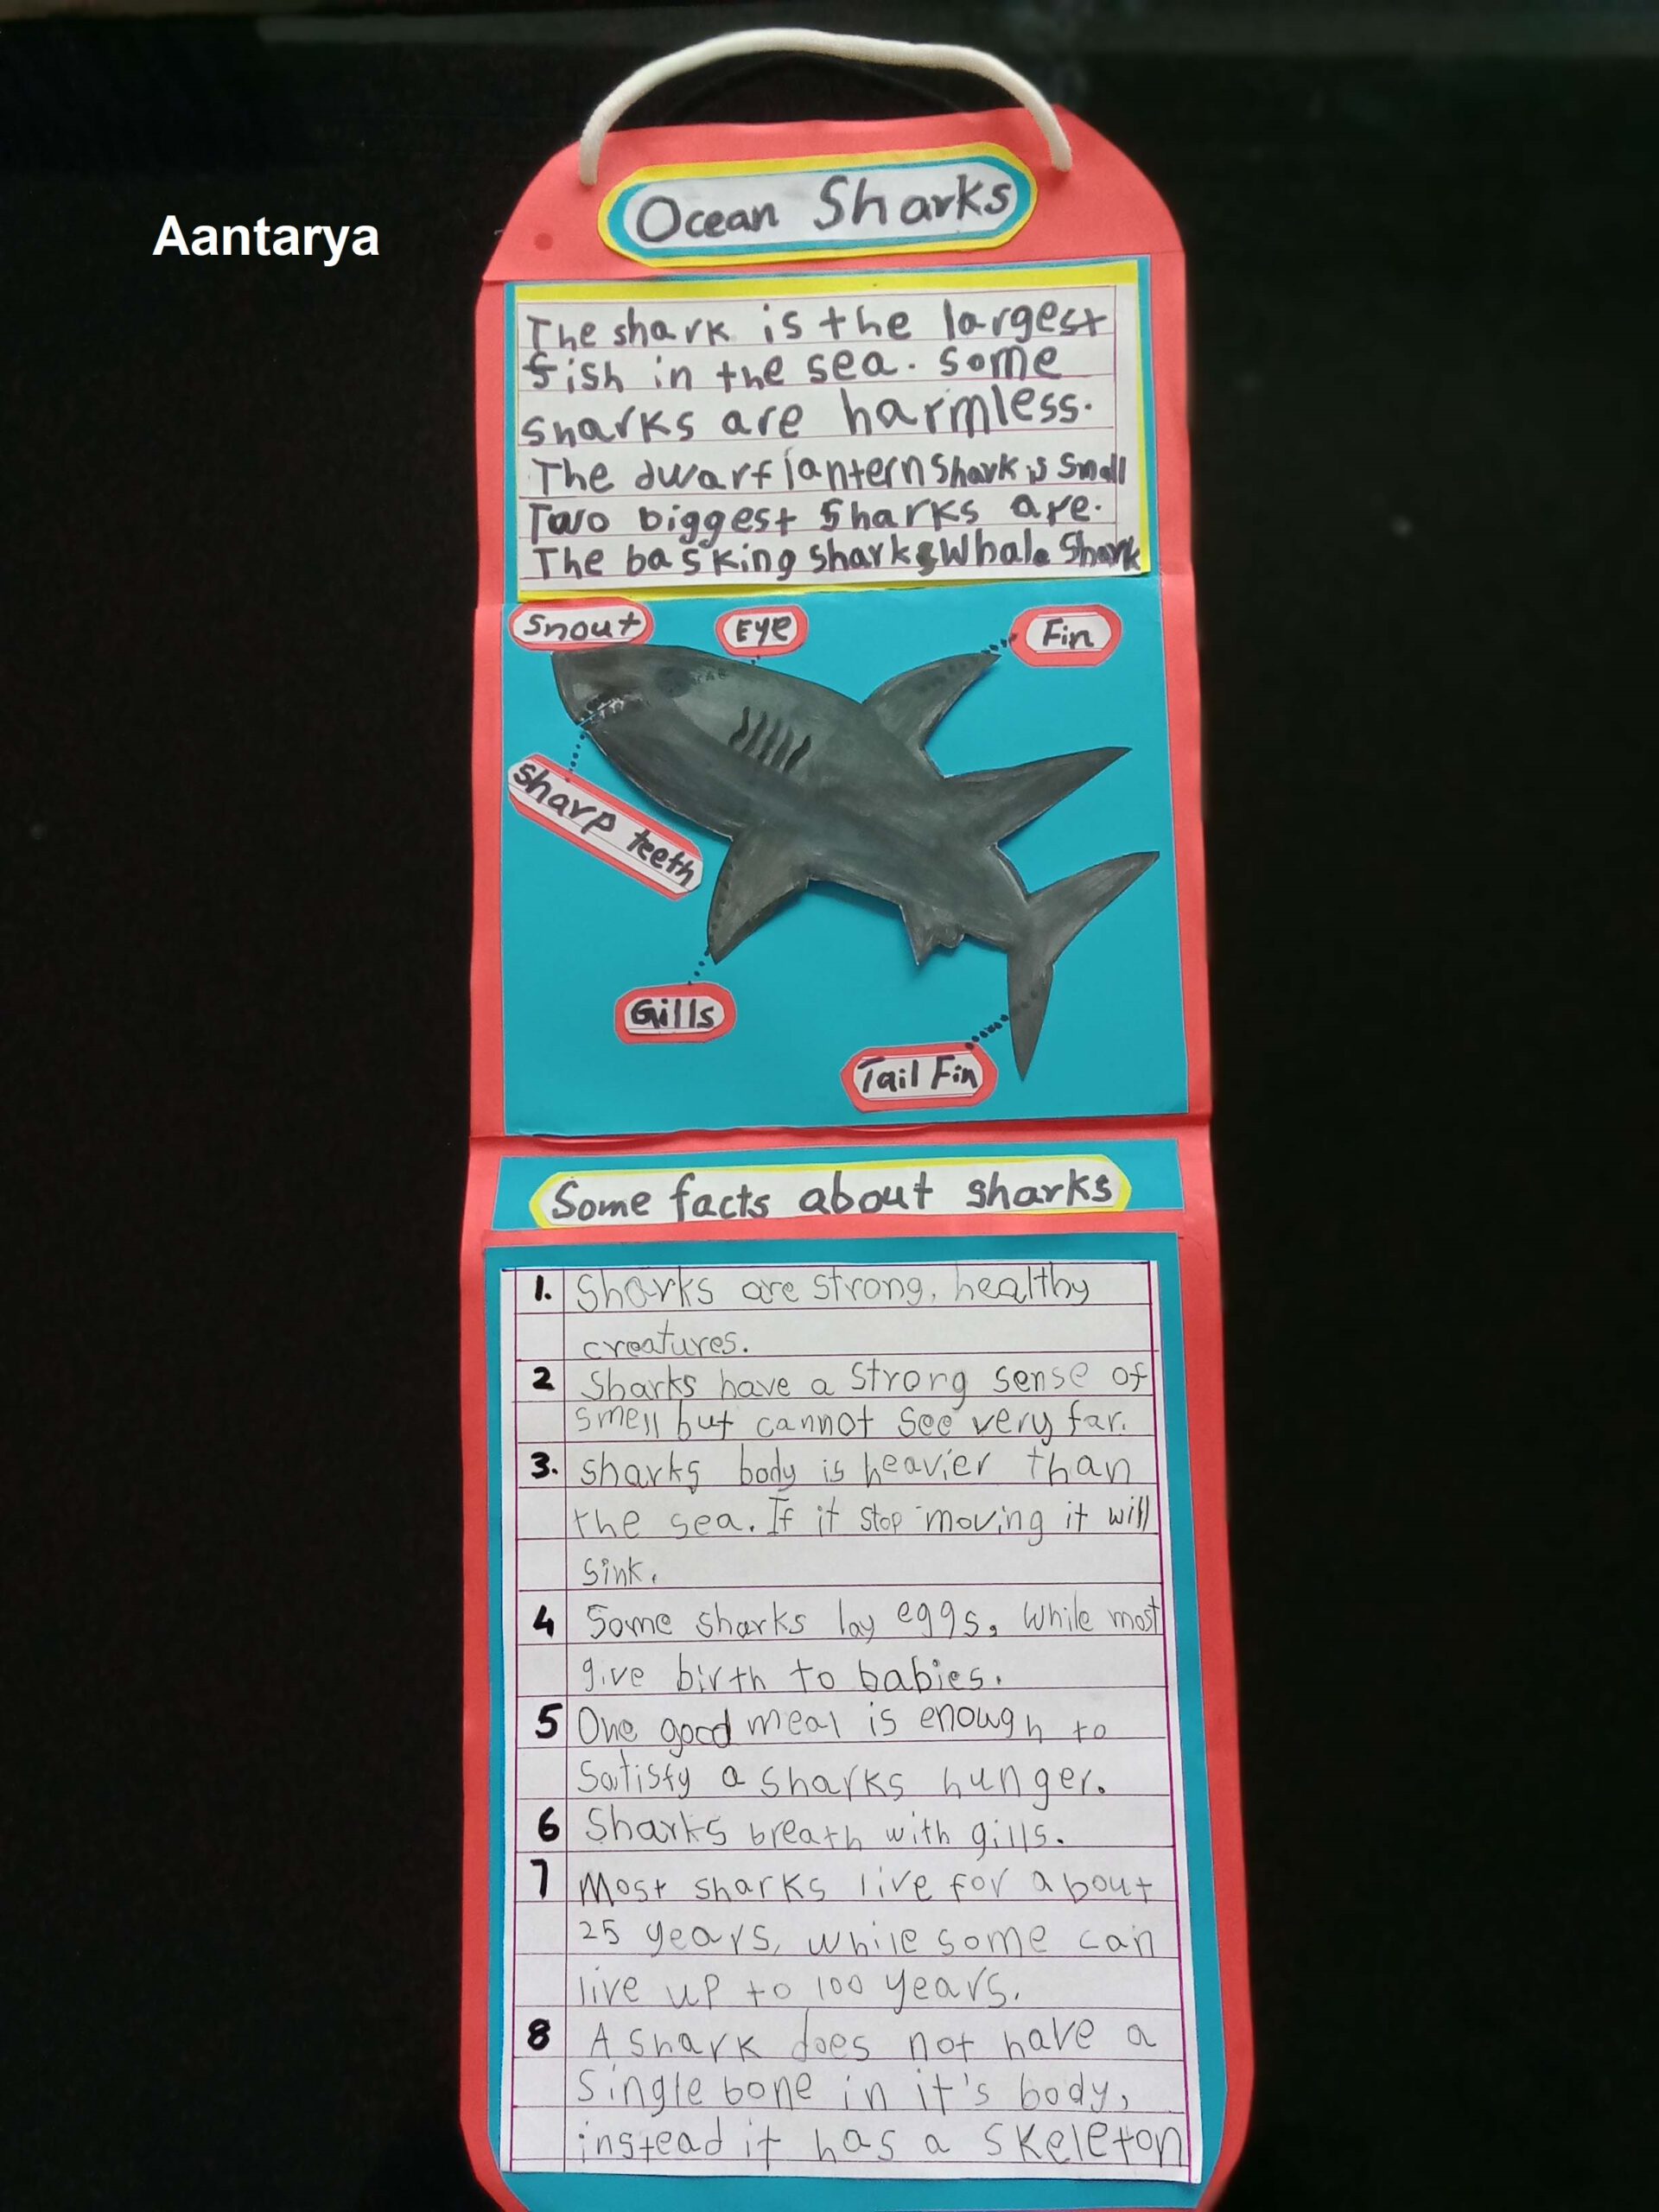 Aantarya
Ocean Sharks
The shark is the largest
fish in the sea. Some
sharks are harmless.
The dwarf lantern Shark is Small
Two biggest Sharks are.
The basking shark & Whale Shark
Snout
Eye
Fin
Sharp teeth
Gills
Tail Fin
Some facts about sharks
1. Sharks are strong, healthy
creatures.
2 Sharks have a strong sense of
smell but cannot see very far.
3. sharks body is heavier than
the sea. If it stop moving it will
sink.
4 Some sharks lay eggs, while most
give birth to babies.
5 One good meal is enough to
satisfy a sharks hunger.
6 Sharks breath with gills.
7 Most sharks live for about
25 years, while some can
live up to 100 years.
8 A shark does not have a
single bone in it's body,
instead it has a skeleton